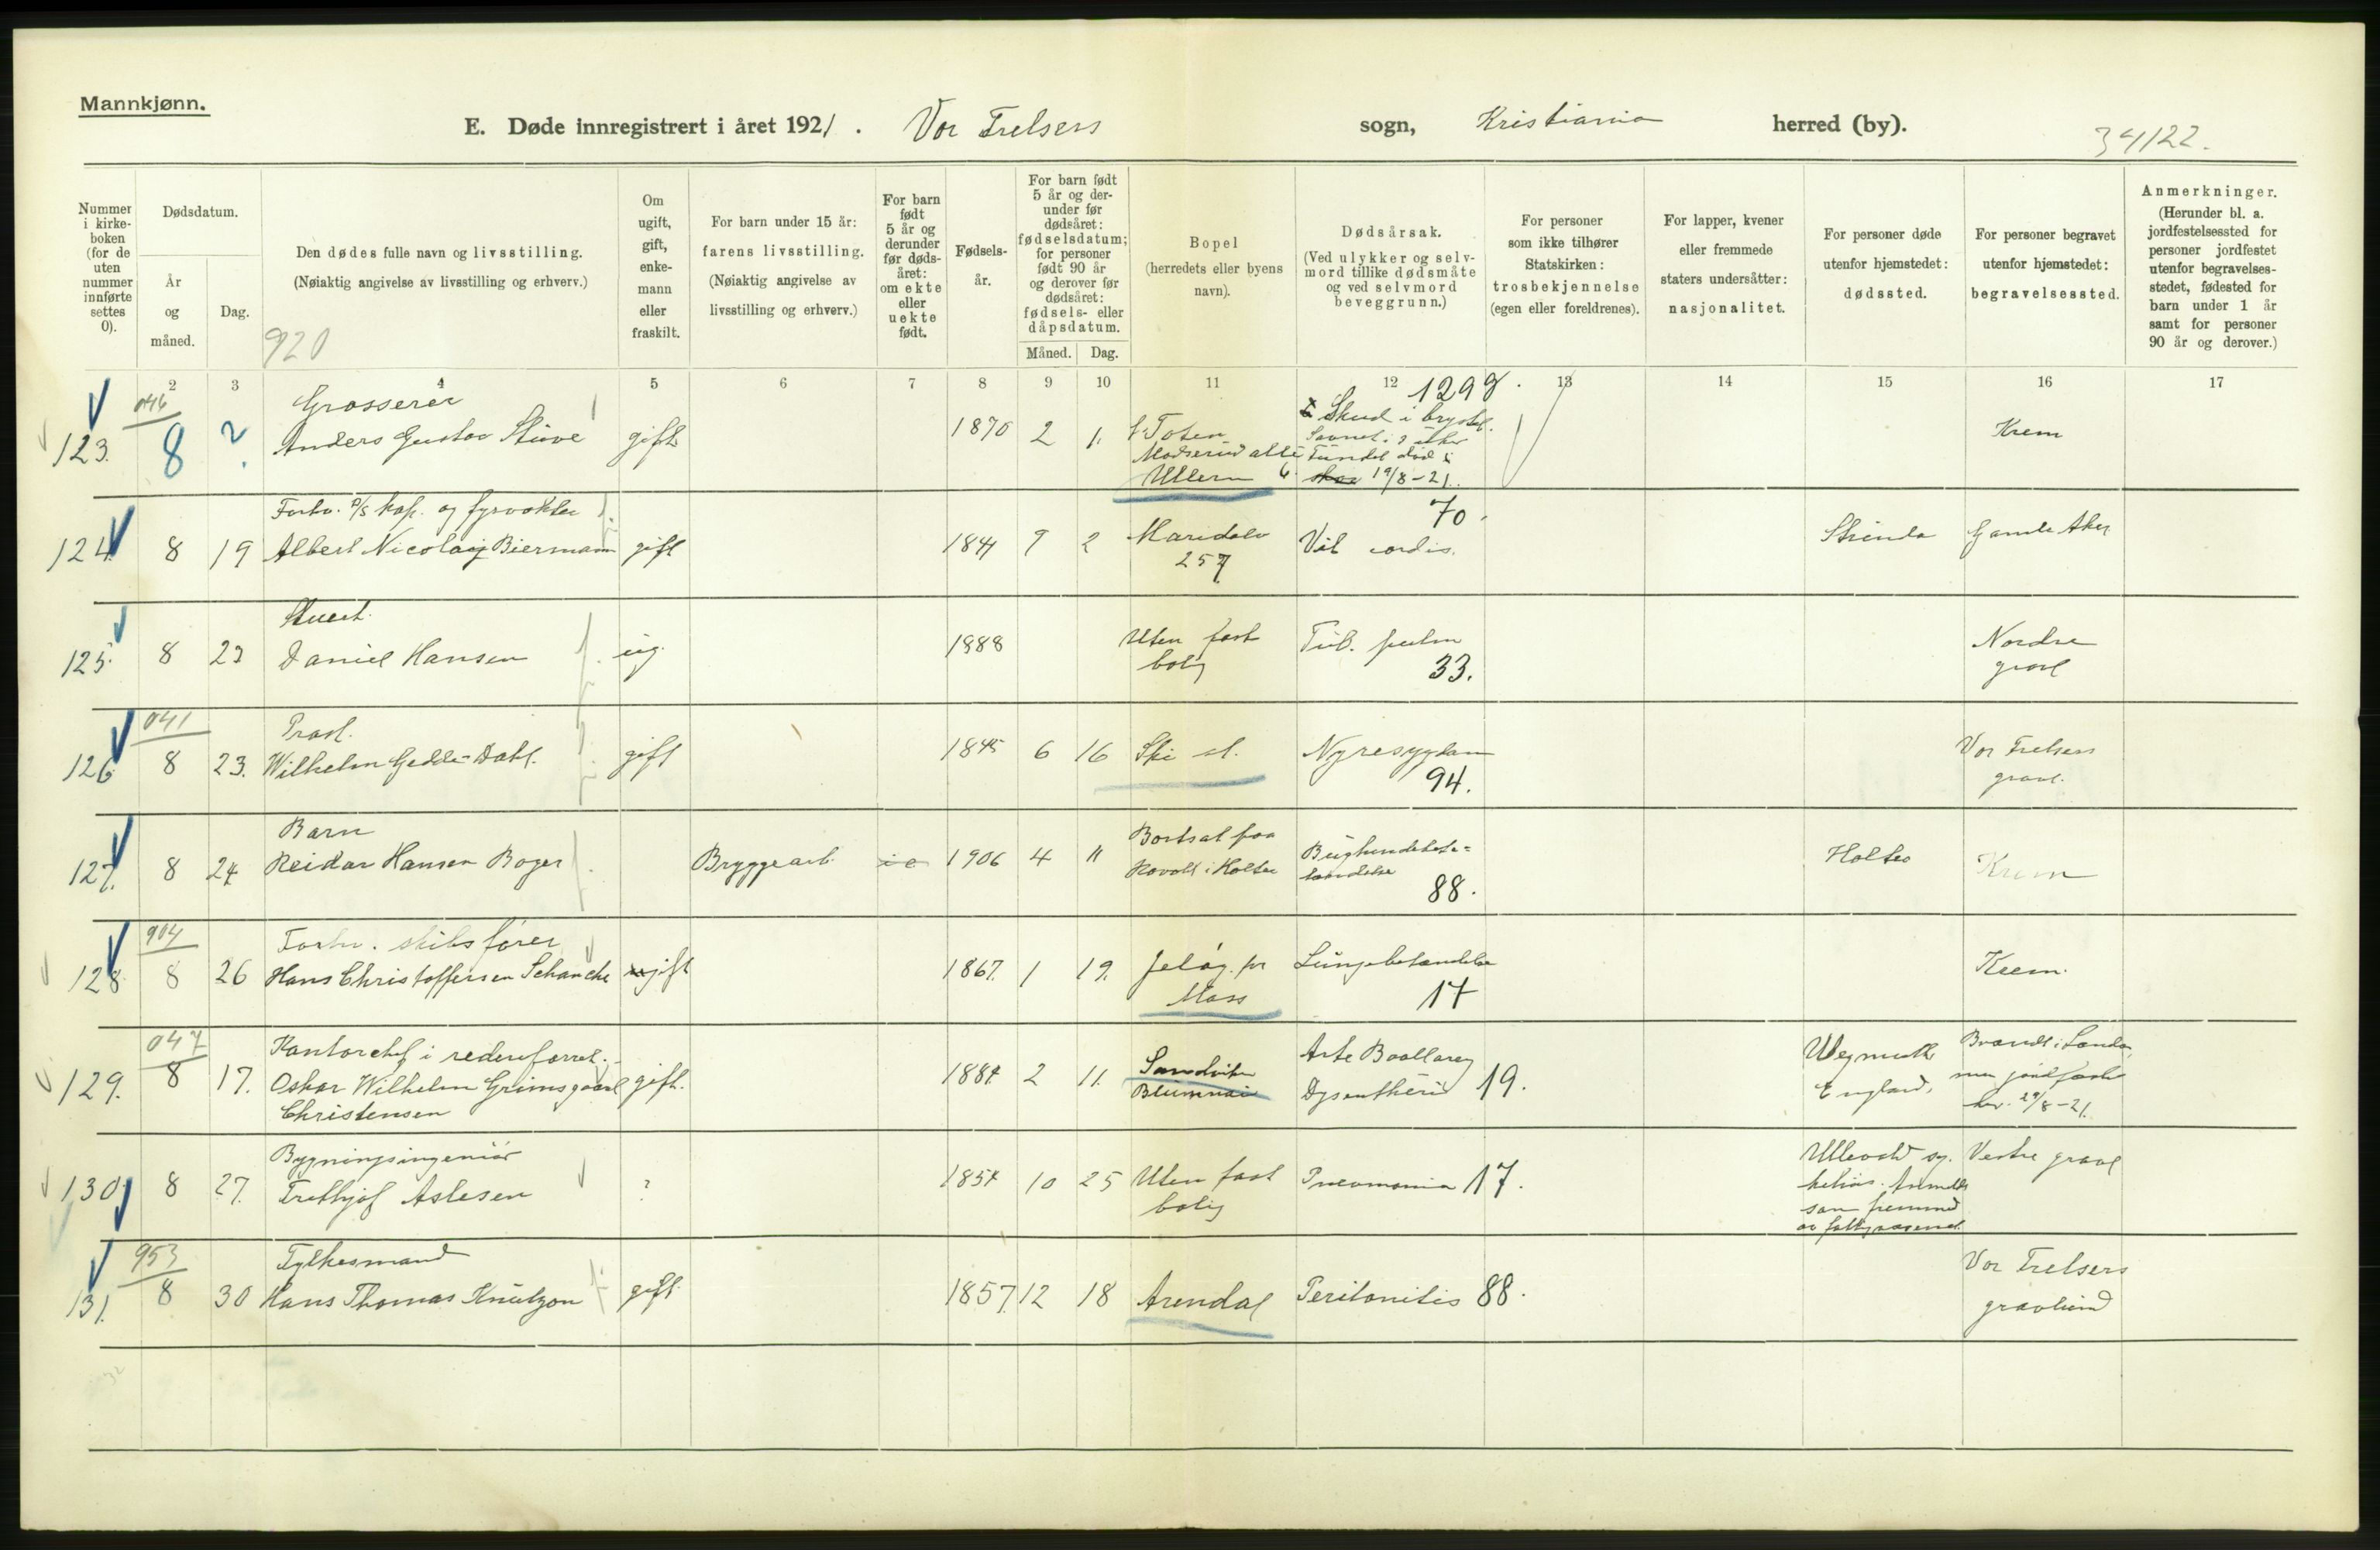 Mannkjønn.
E. Døde innregistrert i året 1921. Vor Frelsers sogn, Kristiania herred (by).
34/22.
Nummer i kirke-boken (for de uten nummer innførte settes 0).
Dødsdatum.
År og måned.
Dag.
Den dødes fulle navn og livsstilling.
(Nøiaktig angivelse av livsstilling og erhverv.)
920
Om ugift, gift, enke-mann eller fraskilt.
For barn under 15 år:
farens livsstilling.
(Nøiaktig angivelse av livsstilling og erhverv.)
For barn født 5 år og derunder før døds-året: om ekte eller uekte født.
Fødsels-år.
For barn født 5 år og der-under før dødsåret: fødselsdatum; for personer født 90 år og derover før dødsåret: fødsels- eller dåpsdatum.
Måned. Dag.
Bopel
(herredets eller byens navn).
Dødsårsak.
(Ved ulykker og selv-mord tillike dødsmåte og ved selvmord beveggrunn.)
For personer som ikke tilhører Statskirken:
trosbekjennelse
(egen eller foreldrenes).
For lapper, kvener eller fremmede staters undersåtter:
nasjonalitet.
For personer døde utenfor hjemstedet:
dødssted.
For personer begravet utenfor hjemstedet:
begravelsessted.
Anmerkninger.
(Herunder bl. a. jordfestelsessted for personer jordfestet utenfor begravelses-stedet, fødested for barn under 1 år samt for personer 90 år og derover.)
2 3 4 5 6 7 8 9 10 11 12 13 14 15 16 17
046
Grosserer
123. 8 ? Anders Gustav Stüve gift 1870 2 1. V. Toten
Ullern
129
Skud i brystet.
Savnet i
Fundet død i
19/8-21.
Krem
Forhv. D/S kap. og fyrvokter
124 8 19 Albert Nicolaij Biermann gift 1841 9 2 Maridalsv
257
70.
Vit cordis.
Strinda
Gamle Aker
Stuert
125. 8 23 Daniel Hansen ug. 1888 Uten fast
bolig
Tub. pulm
33.
Nordre
gravl
041
Prost.
126 8 23. Wilhelm Gedde-Dahl. gift 1845 6 16 Ski st.
Nyresygdom
94.
Vor Frelsers
gravl.
Barn
127. 8 24 Reidar Hansen Boger Bryggearb. 1906 4 11 Bortsat paa
i Holter
88.
Holter
Krem
904
Forhv. skibsfører
128 8 26 Hans Christoffersen Schanche gift 1867. 1 19. Jeløy. pr
Moss
Lungebetændelse
17
Krem.
047
Kontorchef i rederiforret.
129. 8 17. Oskar Wilhelm Grimsgaard gift. 1884 2 11.
Christensen
Sandviken
Blummai
Dysentheri 19.
England.
Brændt i London,
men jordfæstet
her. 29/8-21.
Bygningsingeniør
130 8 27. Fritthjof Aslesen ? 1854 10 25 Uten fast
bolig
Pneumonia 17.
Ullevold sy.
som fremmed
Vestre gravl
953
Fylkesmand
131. 8 30 Hans Thomas Knutzon gift 1857. 12 18 Arendal
Peritonitis 88.
Vor Frelsers
gravlund
32